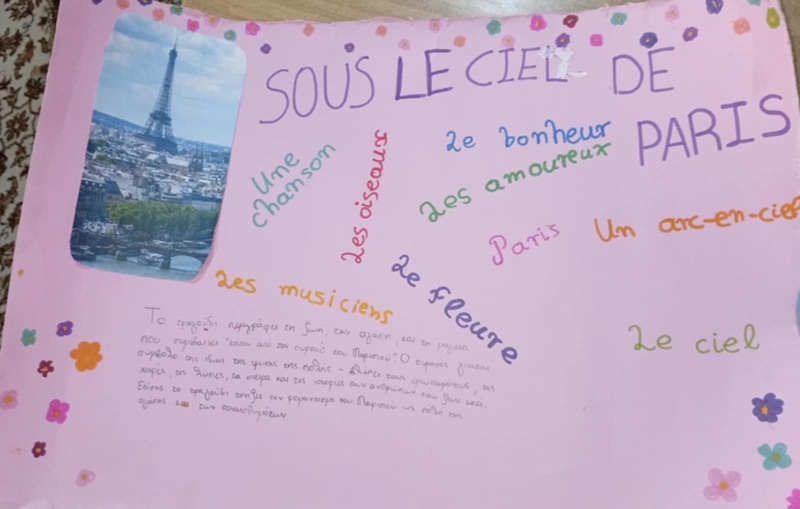 SOUS LE CIEL DE
PARIS
Une
chanson
Les oiseaux
Le bonheur
Les amoureux
Paris
Un arc-en-ciel
Les musiciens
Le fleure
Le ciel
Το τραγούδι περιγράφει τη ζωή, την αγάπη, και τη μαγεία
που συμβαίνει κάτω από τον ουρανό του Παρισιού. Ο ουρανός γίνεται
σύμβολο της ίδιας της ψυχής της πόλης - βλέπει τους ερωτευμένους, τις
χαρές, τις λύπες, τα όνειρα και τις ιστορίες των ανθρώπων που ζουν εκεί.
Επίσης το τραγούδι τονίζει τον ρομαντισμό του Παρισιού ως πόλη της
αγάπης και των συναισθημάτων.